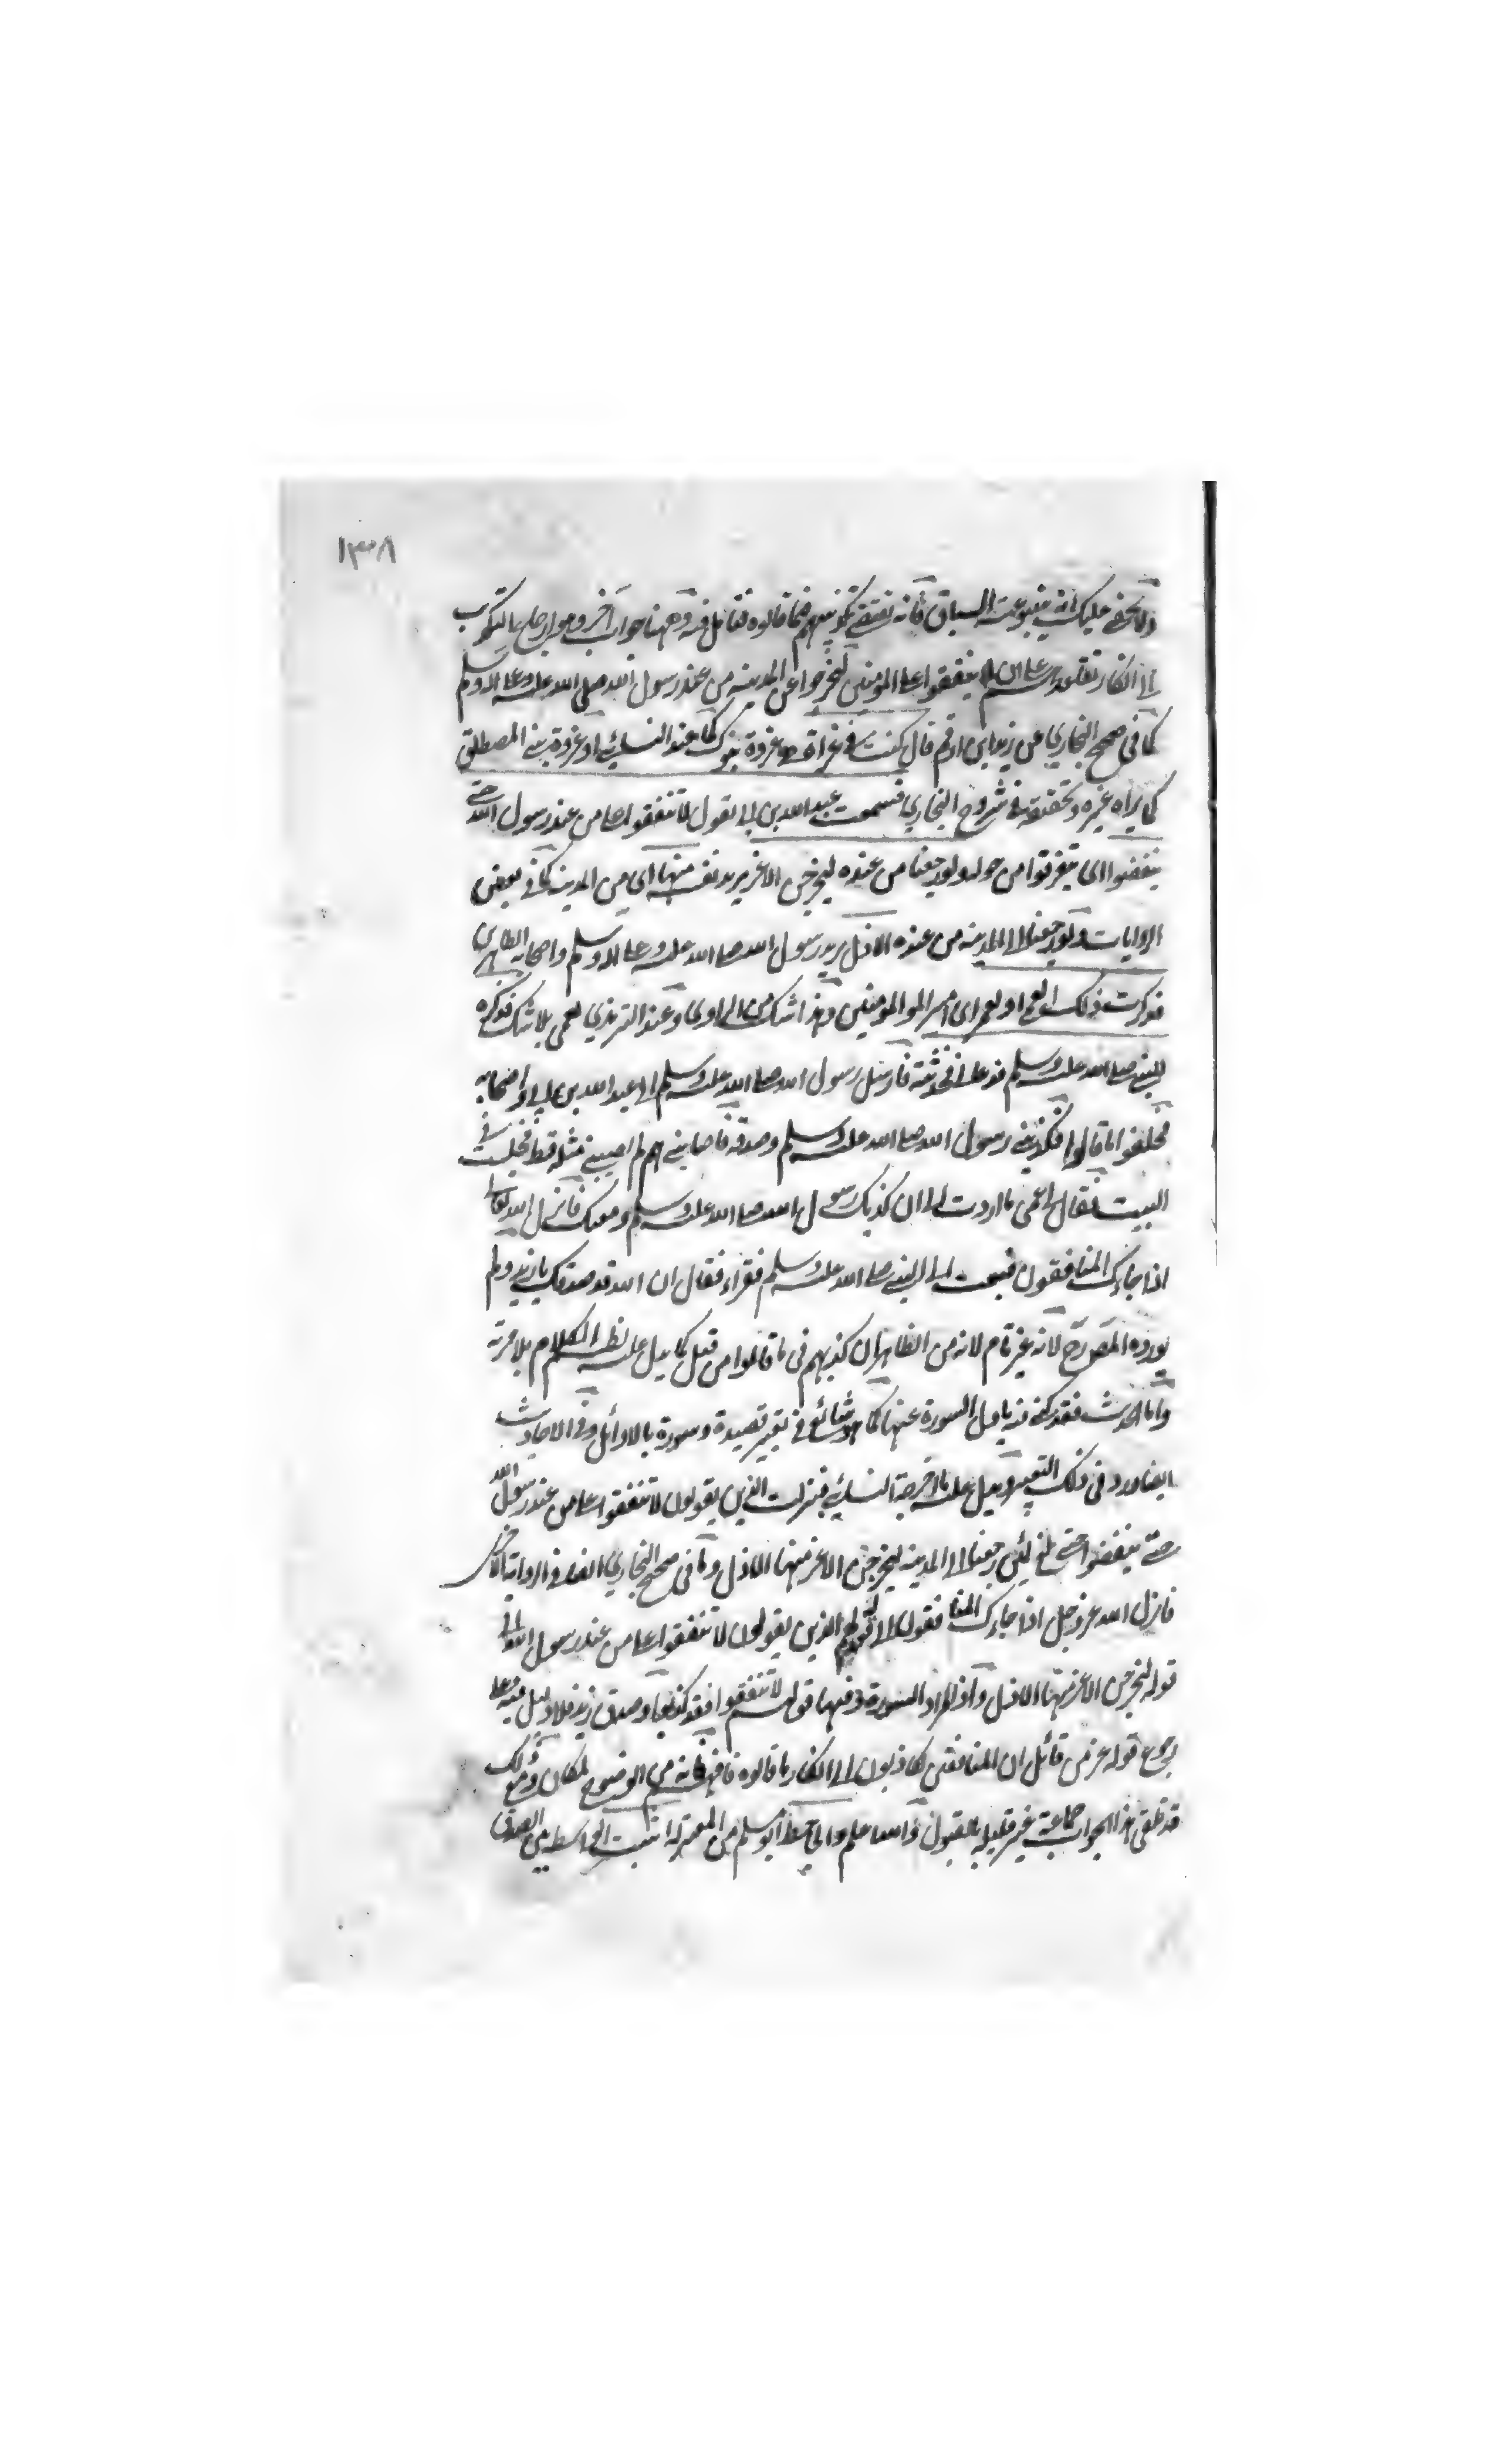 ١٣٨
ولا يخفى عليك انه ينبو عنه السياق فانه يقتضي تكذيبهم فيما قالوه فتأمل فيه وههنا جواب آخر وهو ارجاع التكذيب
الى انكار تعلقه على ان لا ينفقوا على المؤمنين ليخرجوا عن المدينة من عند رسول الله صلى الله عليه وعلى اله وسلم
كما في صحيح البخاري عن زيد ابن ارقم قال كنت في غزاة هي غزوة تبوك كما عند النسائي او غزوة بني المصطلق
كما يراه غيره وتحقيقه في شروح البخاري فسمعت عبد الله بن ابي يقول لا تنفقوا على من عند رسول الله حتى
ينفضوا اى يتفرقوا من حوله ولو رجعنا من عنده ليخرجن الاعز يريد نفسه منها اى من المدينة كما في بعض
الروايات ولو رجعنا الى المدينة من عنده الاذل يريد رسول الله صلى الله عليه وعلى اله وسلم واصحابه الطاهرين
فذكرت ذلك لعمي او لعمر اى امير المؤمنين وهذا شك من الراوي وعند الترمذي لعمي بلا شك فذكره
للنبي صلى الله عليه وسلم فدعاني فحدثته فارسل رسول الله صلى الله عليه وسلم الى عبد الله بن ابي واصحابه
فحلفوا ما قالوا فكذبني رسول الله صلى الله عليه وسلم وصدقه فاصابني هم لم يصبني مثله قط فجلست في
البيت فقال لي عمي ما اردت الى ان كذبك رسول الله صلى الله عليه وسلم ومقتك فانزل الله تعالى
اذا جاءك المنافقون فبعث الي النبي صلى الله عليه وسلم فقراء فقال ان الله قد صدقك يا زيد ولم
يورده المصرح لانه غير تام لانه من الظاهر ان كذبهم في ما قالوا من قبل كما يدل عليه نظم الكلام بلا مرية
واما الحديث فقد كنى فيه باول السورة عنها كما هو شائع في تعبير قصيدة وسورة بالاوائل وفي الاحاديث
ايضا ورد في ذلك التعبير ويدل عليه ما اخرجه النسائي فنزلت الذين يقولون لا تنفقوا على من عند رسول الله
حتى ينفضوا حتى بلغ لئن رجعنا الى المدينة ليخرجن الاعز منها الاذل وما في صحيح البخاري ايضا في الرواية الاخرى
فانزل الله عز وجل اذا جاءك المنافقون الى قوله هم الذين يقولون لا تنفقوا على من عند رسول الله الى
قوله ليخرجن الاعز منها الاذل واذا المراد السورة وفيها قولهم لا تنفقوا فقد كذبوا وصدق زيد فلا دليل فيه على
رجوع قوله عز من قائل ان المنافقين لكاذبون الى انكار ما قالوه فافهم فانه من الوضوح بمكان ومع ذلك
قد تلقى هذا الجواب جماعة غير قليلة بالقبول والله اعلم والجاحظ ابو مسلم من المعتزلة اثبت الواسطة بين الصدق